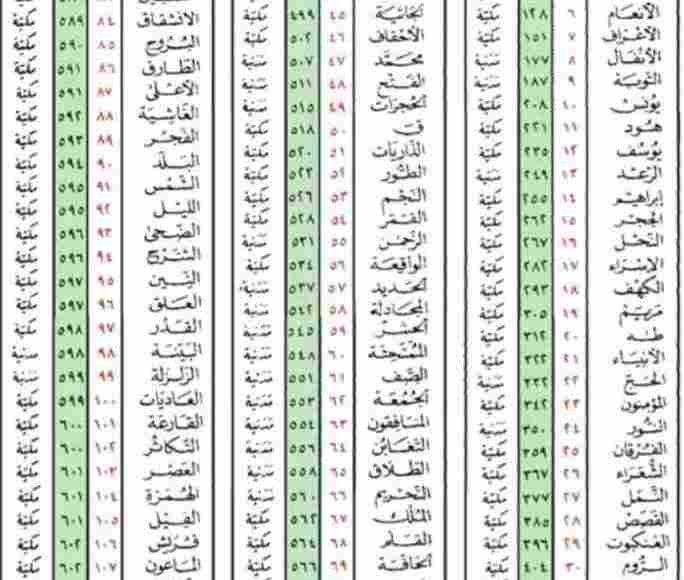 الأنعَام ٦ ١٢٨ مكيّة
الأعرَاف ٧ ١٥١ مكيّة
الأنفَال ٨ ١٧٧ مَدَنية
التوبَة ٩ ١٨٧ مَدَنية
يُونس ١٠ ٢٠٨ مكيّة
هُود ١١ ٢٢١ مكيّة
يُوسُف ١٢ ٢٣٥ مكيّة
الرّعد ١٣ ٢٤٩ مَدَنية
إبراهيم ١٤ ٢٥٥ مكيّة
الحِجر ١٥ ٢٦٢ مكيّة
النّحل ١٦ ٢٦٧ مكيّة
الإسرَاء ١٧ ٢٨٢ مكيّة
الكهف ١٨ ٢٩٣ مكيّة
مَريَم ١٩ ٣٠٥ مكيّة
طه ٢٠ ٣١٢ مكيّة
الأنبيَاء ٢١ ٣٢٢ مكيّة
الحَج ٢٢ ٣٣٢ مَدَنية
المؤمنون ٢٣ ٣٤٢ مكيّة
النُّور ٢٤ ٣٥٠ مَدَنية
الفُرقان ٢٥ ٣٥٩ مكيّة
الشُّعَرَاء ٢٦ ٣٦٧ مكيّة
النَّمل ٢٧ ٣٧٧ مكيّة
القَصَص ٢٨ ٣٨٥ مكيّة
العَنكبوت ٢٩ ٣٩٦ مكيّة
الرُّوم ٣٠ ٤٠٤ مكيّة
الجَاثية ٤٥ ٤٩٩ مكيّة
الأحقَاف ٤٦ ٥٠٢ مكيّة
محَمَّد ٤٧ ٥٠٧ مَدَنية
الفَتْح ٤٨ ٥١١ مَدَنية
الحُجرَات ٤٩ ٥١٥ مَدَنية
ق ٥٠ ٥١٨ مكيّة
الذّاريَات ٥١ ٥٢٠ مكيّة
الطُّور ٥٢ ٥٢٣ مكيّة
النّجْم ٥٣ ٥٢٦ مكيّة
القَمَر ٥٤ ٥٢٨ مكيّة
الرَّحمن ٥٥ ٥٣١ مَدَنية
الواقِعَة ٥٦ ٥٣٤ مكيّة
الحَديد ٥٧ ٥٣٧ مَدَنية
المجَادلة ٥٨ ٥٤٢ مَدَنية
الحَشر ٥٩ ٥٤٥ مَدَنية
المُمتَحنَة ٦٠ ٥٤٨ مَدَنية
الصَّف ٦١ ٥٥١ مَدَنية
الجُمُعَة ٦٢ ٥٥٣ مَدَنية
المنَافِقون ٦٣ ٥٥٤ مَدَنية
التغَابُن ٦٤ ٥٥٦ مَدَنية
الطَّلَاق ٦٥ ٥٥٨ مَدَنية
التّحْريم ٦٦ ٥٦٠ مَدَنية
المُلك ٦٧ ٥٦٢ مكيّة
القَلَم ٦٨ ٥٦٤ مكيّة
الحَاقة ٦٩ ٥٦٦ مكيّة
الانشقَاق ٨٤ ٥٨٩ مكيّة
البُرُوج ٨٥ ٥٩٠ مكيّة
الطّارق ٨٦ ٥٩١ مكيّة
الأعلى ٨٧ ٥٩١ مكيّة
الغَاشِية ٨٨ ٥٩٢ مكيّة
الفَجْر ٨٩ ٥٩٣ مكيّة
البَلَد ٩٠ ٥٩٤ مكيّة
الشّمْس ٩١ ٥٩٥ مكيّة
الليل ٩٢ ٥٩٥ مكيّة
الضّحى ٩٣ ٥٩٦ مكيّة
الشّرْح ٩٤ ٥٩٦ مكيّة
التّين ٩٥ ٥٩٧ مكيّة
العَلق ٩٦ ٥٩٧ مكيّة
القَدْر ٩٧ ٥٩٨ مكيّة
البَيّنَة ٩٨ ٥٩٨ مَدَنية
الزلزلة ٩٩ ٥٩٩ مَدَنية
العَاديَات ١٠٠ ٥٩٩ مكيّة
القَارعَة ١٠١ ٦٠٠ مكيّة
التّكاثر ١٠٢ ٦٠٠ مكيّة
العَصْر ١٠٣ ٦٠١ مكيّة
الهُمَزة ١٠٤ ٦٠١ مكيّة
الفِيل ١٠٥ ٦٠١ مكيّة
قُرَيش ١٠٦ ٦٠٢ مكيّة
الماعون ١٠٧ ٦٠٢ مكيّة